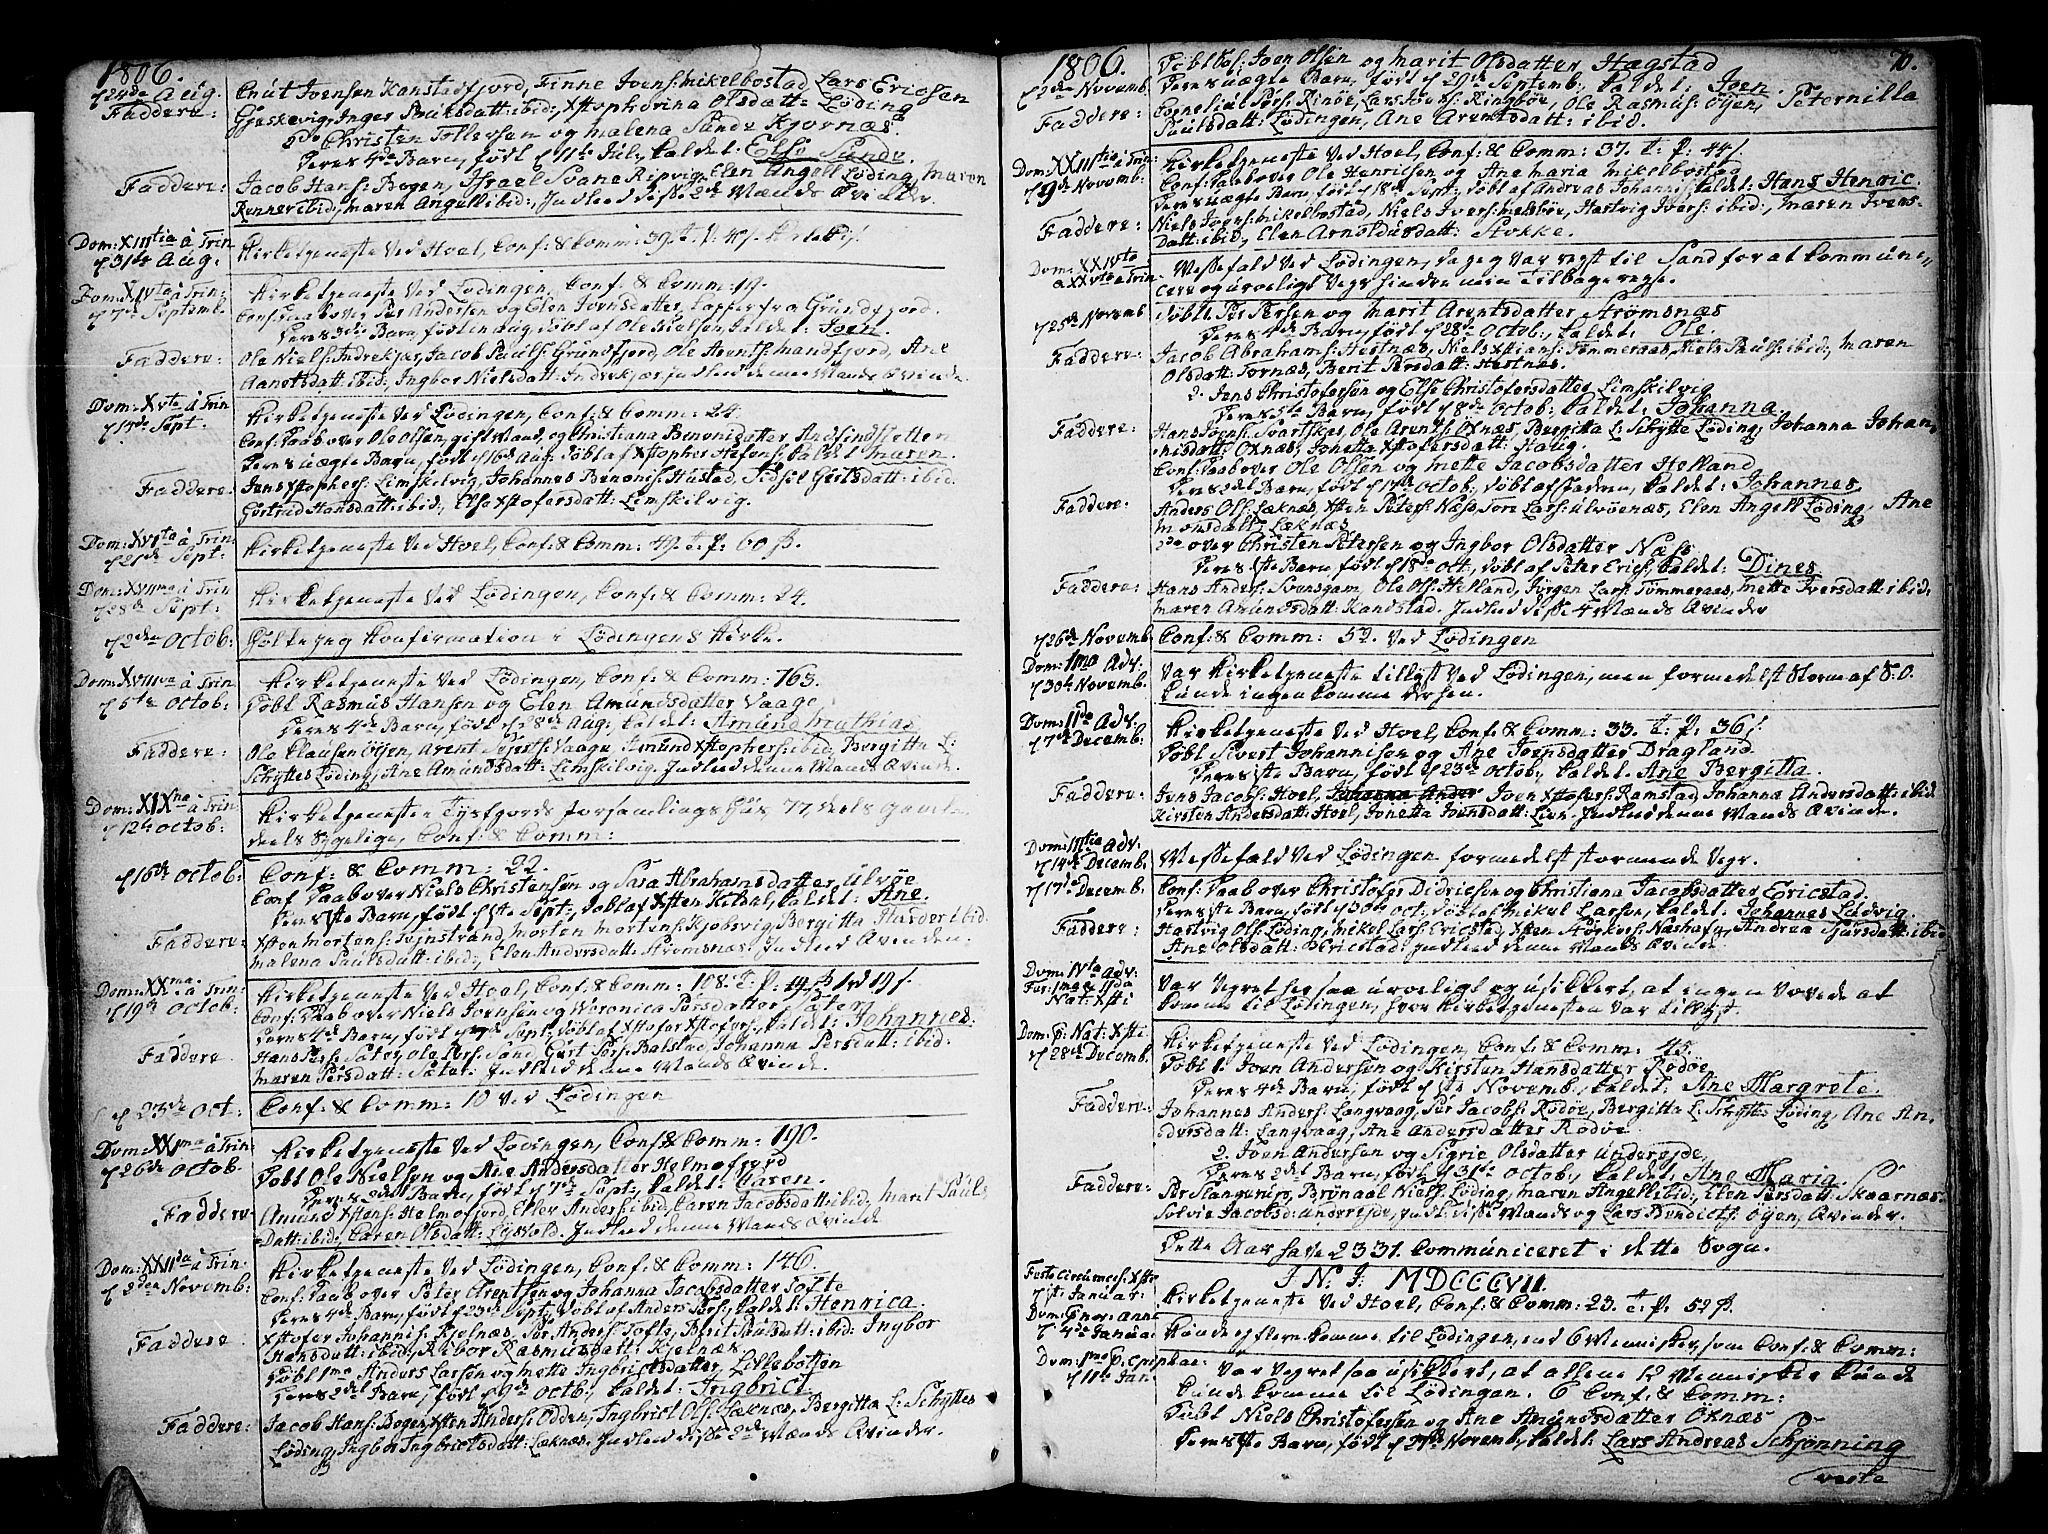 1806.
24de Aug.
Faddere:
Cnut Joensen Kanstadfjord, Finne Joens: Mikelbostad, Lars Ericsen
Gjeskevig, Inger Paulsdatt: ibid: Xstophorina Olsdatt: Løding
2do Christen Tollersen og Malena Sunde Kjørnæs
Deres 4de Barn, født 11te Jul:, kaldet: Else Sunde.
Faddere: Jacob Hans: Bogen, Israel Svane Ripvig, Elen Angell Løding, Maren
Renner ibid:, Maren Angell ibid:, Indleed disse 2de Mænds Qvinder.
Dom: XIIItia à Trin
31te Aug:
Kirketjeneste ved Hoel, Conf: & Comm: 39.
Dom: XIVta à Trin:
7de Septemb.
Kirketjeneste ved Lødingen, Conf: & Comm: 19.
Conf: Daab over Per Andersen og Elen Joensdatter, Lapper fra Grundfjord.
Deres 3die Barn, født in Aug, døbt af Ole Nielsen, kaldet: Joen.
Faddere: Ole Niels: Indrekjær, Jacob Pauls: Grundfjord, Ole Arents: Mandfjord, Ane
Aanetsdatt: ibid:, Ingbor Nielsdatt: Indrekjær, Indleed denne Mands Qvinde.
Dom: XVta à Trin
14de Sept.
Kirketjeneste ved Lødingen, Conf: & Comm: 24.
Conf: Daab over Ole Olsen, gift Mand, og Christiana Benonisdatter,
Deres uægte Barn, født 16de Aug: døbt af Xstopher kaldet Maren.
Faddere: Jens Xstophers: Limskilvig, Johannes Benonis: Hustad, Sidsel Gertsdatt: ibid.
Gertrud Hansdatt: ibid:, Else Xstofersdatt: Limskilvig.
Dom: XVIta à Trin
21de Sept.
Kirketjeneste ved Hoel, Conf: & Comm: 49. T. P. 60 ß.
Dom: XVIIma à Trin
28de Sept:
Kirketjeneste ved Lødingen, Conf: & Comm: 24.
2den Octob:
Holt jeg Konfirmation i Lødingens Kirke.
Dom: XVIIIva à Trin
5te Octob:
Kirketjeneste ved Lødingen, Conf: & Comm: 163.
Døbt Rasmus Hansen og Elen Amundsdatter Vaage
Deres 4de Barn, født 28de Aug: kaldet: Amund Mathias
Faddere: Ole Clausen Øyen, Arent Sejerts: Vaage, Amund Xstophers: ibid, Bergitte L:
Schyttes Løding, Ane Amundsdatt: Limskilvig. Indleed denne Mands Qvinde.
Dom: XIXna à Trin
12te Octob:
Kirketjeneste Tysfjords forsamlings Hus 77,
deels sygelige, Conf: & Comm:
16de Octob:
Conf: & Comm: 22.
Conf Daab over Niels Christensen og Sara Abrahamsdatter Ulvøe
Deres 1ste Barn, født 1ste Sept:, døbt af Xsten Keldal, kaldet: Ane.
Faddere: Xsten Mortens: Svinstrand, Morten Mortens: Kjobsvig, Bergitta Harder ibid.
Malena Paulsdatt: ibid:, Elen Andersdatt: Strømsnæs, Indleed Qvinden.
Dom: XXma à Trin:
19de Octob:
Kirketjeneste ved Hoel, Conf: & Comm: 108. T. P.
Conf: Daab over Niels Joensen og Veronica Persdatter Sæter
Deres 4de Barn, født Sept: døbt af Xstofer Xstofers:, kaldet: Johannes:
Faddere Hans Pers: Sæter, Ole Pers: Sand, Gert Pers: Balstad, Johanna Persdatt: ibid:
Maren Persdatt: Sæter: Indleed denne Mands Qvinde.
23de Oct:
Conf: & Comm: 10 ved Lødingen
Dom: XXIma à Trin:
26de Octob.
Kirketjeneste ved Lødingen, Conf: & Comm: 190.
Døbt Ole Nielsen og Ane Andersdatter Helmofjord
Deres 2det Barn, født 7de Sept:, kaldet: Caren.
Faddere Amund Xstens: Helmofjord, Eller Anders: ibid, Caren Jacobsdatt: ibid, Marit Pauls-
Datt: ibid, Caren Olsdatt: Indleed denne Mands Qvinde
Dom: XXIIda à Trin
2den Novemb:
Kirketjeneste ved Lødingen, Conf: & Comm: 146.
Conf: Daab over Peter Arentsen og Johanna Jacobsdatter Tofte
Deres 4de Barn, født 23de Sept, døbt af Anders Pers:, kaldet: Henrica.
Faddere Xstofer Johannis: Kjelnæs, Per Anders: Tofte, Berit Paulsdatt: ibid: Ingbor
Hansdatt: ibid, Rebor Rasmusdatt: Kjelnæs
Døbt 1mo Anders Larsen og Mette Ingbrictsdatter Lillebotten
Deres 2det Barn, født 9de Octb:, kaldet: Ingbrict.
Faddere: Jacob Hans: Bogen, Xsten Anders: Odden, Ingbrict Ols: Læknæs, Bergitta L: Schyttes
Løding, Ingbor Ingbrictsdatt: Læknæs. Indleed disse 2de Mænds Qvinder.
1806. 70.
2den Novemb.
Døbt Joen Olsen og Marit Olsdatter Hægstad
Deres uægte Barn, født 20de Septemb:, kaldet: Joen.
Faddere: Cornelius Pers: Rinøe, Lars Joens: Ringbøe, Ole Rasmus: Øyen, Peternilla
Paulsdatt: Lødingen, Ane Arentsdatt: ibid.
Dom: XXIIItia à Trin:
9de Novemb:
Kirketjeneste ved Hoel, Conf: & Comm: 37. T. P. 44ß.
Conf: Daab over Ole Henricsen og Ane Maria Mikelbostad
Deres uægte Barn, født 18de Sept: døbt af Andreas Johannis: kaldet: Hans Henric.
Faddere: Niels Joens: Mikelbostad, Niels Ivers: Melsbøe, Hartvig Ivers: ibid:, Maren Ivers-
Datt: ibid:, Elen Arnoldusdatt: Stokke.
Dom: XXIVta
& XXVta à Trin:
Messefald ved Lødingen, da jeg var rejst til Sand for at Commune-
cere og uroeligt Vejr hindrede min Tilbagerejse.
25de Novemb
Døbt Per Persen og Marit Arentsdatter Strømsnæs
Deres 4de Barn, født 28de Octob:, kaldet: Ole.
Faddere: Jacob Abrahams: Hestnæs, Niels Xstians: Tømmeraas, Niels Pauls: ibid:, Maren
Olsdatt: Tornæs, Berit Persdatt: Hestnæs.
2. Jens Christofersen og Else Christofersdatter Limskilvig
Deres 5te Barn, født 8de Octob: kaldet: Johanna.
Faddere: Hans Joens: Svartskar, Ole Arents: Oxnæs, Bergitta L: Schytte Løding, Johanna Johan-
nisdatt: Oxnæs, Jonetta Xstofersdatt: Haug.
Conf: Daab over Ole Olsen og Mette Jacobsdatter Helland
Deres 2det Barn, født 17de Octob:, døbt af Faderen, kaldet: Johannes.
Faddere: Anders Ols: Læknæs, Xsten Peters: Næss, Tore Lars: Ulvøenæs, Elen Angell Løding, Ane
Monsdatt: Læknæs
2do over Christen Petersen og Ingbor Olsdatter Næss
Deres 1ste Barn, født 18de Oct:, døbt af Peter Erics:, kaldet: Dines
Faddere: Hans Anders: Svensgam, Ole Ols: Helland, Jørgen Lars: Tømmeraas, Mette Iversdatt: ibid:
Maren Amundsdatt: Kanstad. Indleed disse 4 Mænds Qvinder
26de Novemb.
Conf: & Comm: 52. ved Lødingen
Dom: 1ma Adv:
30te Novemb.
Var Kirketjeneste tillyst ved Lødingen, men formedelst Storm af S.O.
kunde ingen komme dersen.
Dom: IIda Adv:
7de Decemb:
Kirketjeneste ved Hoel, Conf: & Comm: 33. T. P. 36ß.
Døbt Sivert Johannisen og Ane Joensdatter Dragland
Deres 1ste Barn, født 23de Octob:, kaldet: Ane Bergitta.
Faddere: Jens Jacobs: Hoel, Iven Xstofers: Ramstad, Johanna Andersdatt: ibid
Kirsten Andersdatt: Hoel, Jonetta Joensdatt: Lien. Indleed denne Mands Qvinde.
Dom: IIItia Adv:
14de Decemb:
Messefald ved Lødingen formedelst stormende Vejr.
17de Decemb.
Conf: Daab over Christofer Didricsen og Christiana Jacobsdatter Ericstad
Deres 1ste Barn, født 30te Oct: døbt af Mikel Larsen, kaldet: Johannes Ludvig.
Faddere: Hartvig Ols: Løding, Mikel Lars: Ericstad, Xsten Næshafn, Andrea Sjursdatt: ibid
Ane Olsdatt: Ericstad, Indleed denne Mands Qvinde
Dom: IVta Adv:
Fer: 1ma & 2da
Nat: Xsti
Var Vejret saa uroeligt og usikkert, at ingen vovede at
komme til Lødingen, hvor Kirketjenesten var tillyst.
Dom: p: Nat: Xsti
28de Decemb.
Kirketjeneste ved Lødingen, Conf: & Comm: 45.
Døbt 1. Joen Andersen og Kirsten Hansdatter Rødøe
Deres 4de Barn, født 1ste Novemb, kaldet: Ane Margrete.
Faddere: Johannes Anders: Langvaag, Per Jacobs: Rødøe, Bergitta L: Schyttes Løding, Ane An-
dersdatt: Langvaag, Ane Andersdatter Rødøe
2. Joen Andersen og Sigrie Olsdatter Underejde,
Deres 2det Barn, født 31te Octob:, kaldet: Ane Maria.
Faddere: Per Slangerups, Brønaal Niels: Løding, Maren Angell ibid:, Elen Persdatt: Skaarnæs.
Solvie Jacobsd: Underejde, Indl: disse Mands og Lars Bendicts: Øyen, Qvinder.
Dette Aar have 2331. Communiceret i dette Sogn.
I. N. I. MDCCCVII.
Festo Circumcis: Xsti
1ste Januar:
Kirketjeneste ved Hoel, Conf: & Comm: 23. T. P. 52ß.
Dom: p nov: anni
4de Janua:
Kunde ej flere komme til Lødingen, end 6 Mennisker, som Conf: & Comm:
Dom: 1ma p: Epiphae:
11te Jan:
Var Vejret saa usikkert, at allene 12 Mennisker kunde
kunde komme til Lødingen. 6 Conf: & Comm:
Døbt Niels Christofersen og Ane Amundsdatter Oxnæs
Deres 1ste Barn, født Novemb, kaldet: Lars Andreas Schjønning